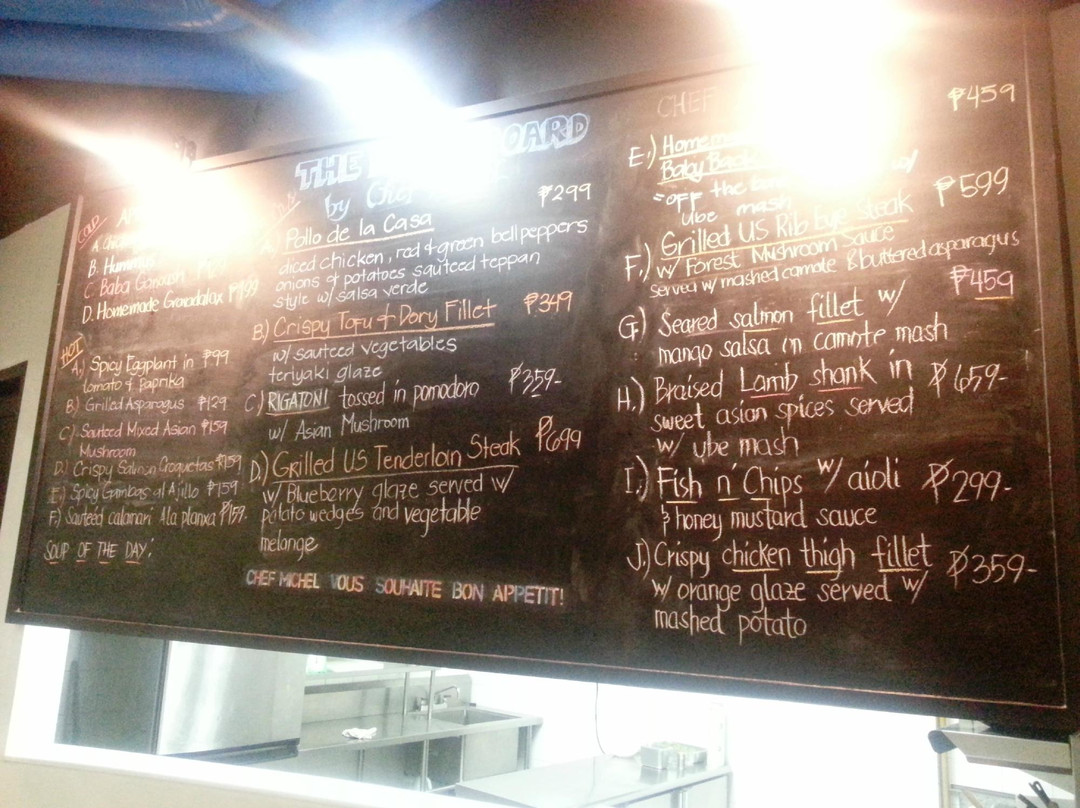 THE
by
HOT
B. Hummus
C. Baba Ganoush
D. Homemade Gravadalax ₱199
A.) Spicy Eggplant in ₱99
tomato & Paprika
B.) Grilled Asparagus ₱129
C.) Sauteed Mixed Asian ₱159
Mushroom
D.) Crispy Salmon Croquetas ₱159
E.) Spicy Gambas al Ajillo ₱159
F.) Sauteed calamari Ala planxa ₱159-
SOUP OF THE DAY:
Pollo de la Casa ₱299
diced chicken, red & green bellpeppers
onions & potatoes sauteed teppan
style w/ salsa verde
B) Crispy Tofu & Dory Fillet ₱349
w/ sauteed vegetables
teriyaki glaze
C) RIGATONI tossed in pomodoro ₱359-
w/ Asian Mushroom
D.) Grilled US Tenderloin Steak ₱699
w/ Blueberry glaze served w/
potato wedges and vegetable
melange
CHEF MICHEL VOUS SOUHAITE BON APPETIT!
CHEF ₱459
E.)
Baby Back w/
off the
ube mash
F.) Grilled US Rib Eye Steak ₱599
w/ Forest Mushroom Sauce
served w/ mashed camote & buttered asparagus
G.) Seared salmon fillet w/ ₱459
mango salsa in camote mash
H.) Braised Lamb shank in ₱659-
sweet asian spices served
w/ ube mash
I.) Fish n' Chips w/ aioli ₱299-
& honey mustard sauce
J.) Crispy chicken thigh fillet ₱359-
w/ orange glaze served w/
mashed potato